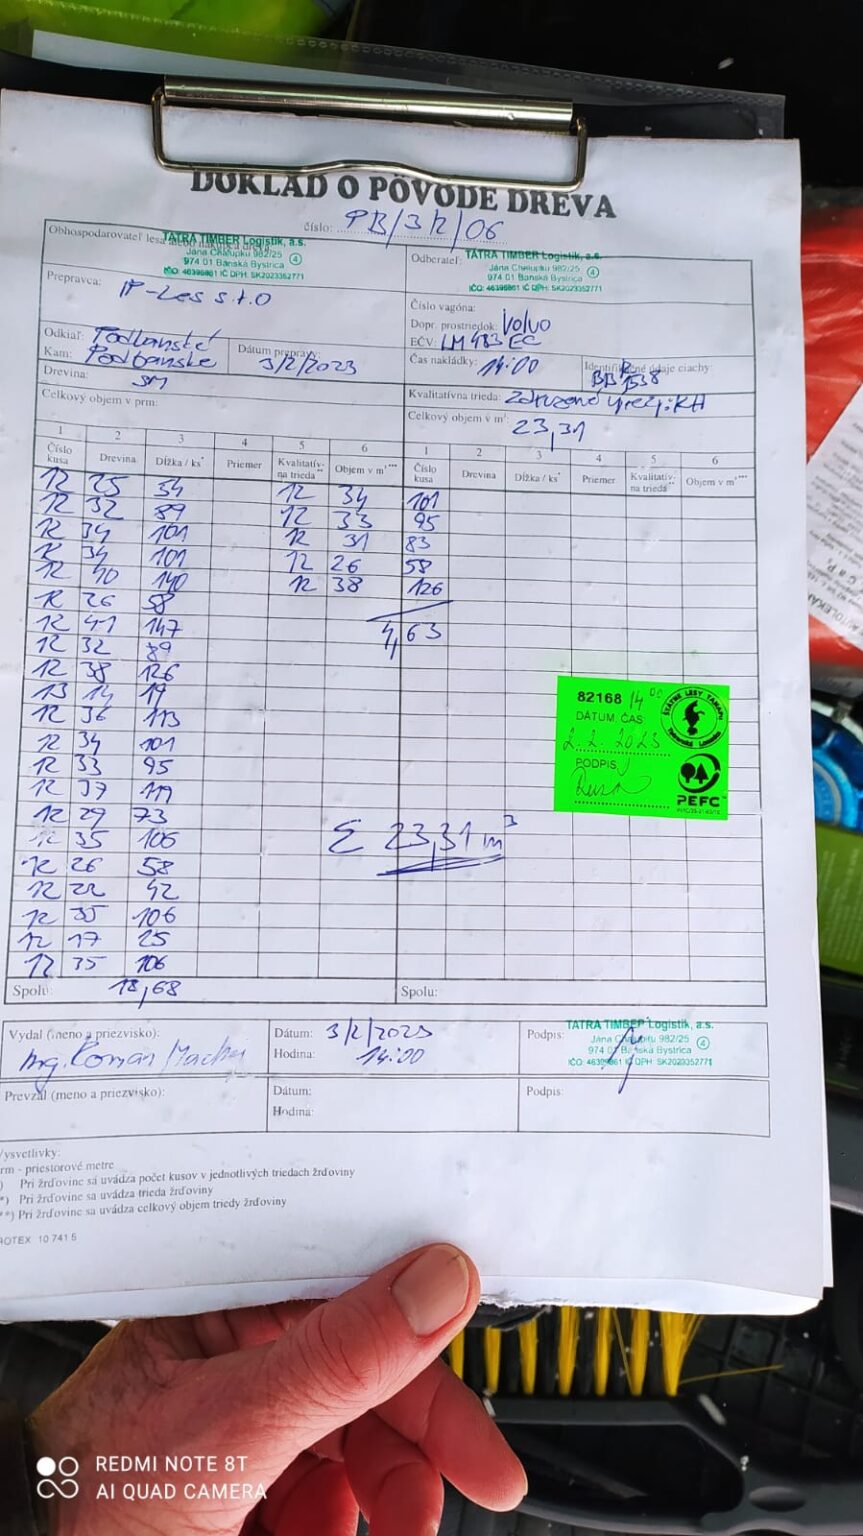 DOKLAD O PÔVODE DREVA
číslo: PB/3/2/06
Obhospodarovateľ lesa
TATRA TIMBER Logistik, a.s.
Jána Chalupku 982/25
974 01 Banská Bystrica
IČO: 46395861 IČ DPH: SK2023352771
4
Odberateľ:
TATRA TIMBER Logistik, a.s.
Jána Chalupku 982/25
974 01 Banská Bystrica
IČO: 46395861 IČ DPH: SK2023352771
4
Prepravca: IP-Les s.r.o
Číslo vagóna:
Dopr. prostriedok: Volvo
EČV: LM 483 EC
Odkiaľ: Podbanské
Kam: Podbanske
Dátum prepravy: 3/2/2023
Čas nakládky: 14:00
Drevina: SM
Kvalitatívna trieda:
Celkový objem v prm:
Celkový objem v m³: 23,31
1 2 3 4 5 6 1 2 3 4 5 6
Číslo kusa Drevina Dĺžka / ks* Priemer Kvalitatív- na trieda** Objem v m³*** Číslo kusa Drevina Dĺžka / ks* Priemer Kvalitatív- na trieda** Objem v m³***
12 25 54 12 34 101
12 32 89 12 33 95
12 34 101 12 31 83
12 34 101 12 26 58
12 40 140 12 38 126
12 26 58
12 41 147 4,63
12 32 89
12 38 126
13 14 19
12 36 113
12 34 101
12 33 95
12 37 119
12 29 73
12 35 106 Σ 23,31 m³
12 26 58
12 22 42
12 35 106
12 17 25
12 35 106
82168 14 00
DÁTUM ČAS
2.2.2023
PODPIS
ŠTÁTNE LESY TANAPU
PEFC
Spolu: 18,68 Spolu:
Vydal (meno a priezvisko):
Ing. Roman
Dátum: 3/2/2023
Hodina: 14:00
Podpis:
TATRA TIMBER Logistik, a.s.
Jána Chalupku 982/25
974 01 Banská Bystrica
IČO: 46395861 IČ DPH: SK2023352771
4
Prevzal (meno a priezvisko):
Dátum:
Hodina:
Podpis:
Vysvetlivky:
rm - priestorové metre
) Pri žrďovine sa uvádza počet kusov v jednotlivých triedach žrďoviny
*) Pri žrďovine sa uvádza trieda žrďoviny
**) Pri žrďovine sa uvádza celkový objem triedy žrďoviny
ROTEX 10 741 5
REDMI NOTE 8T
AI QUAD CAMERA